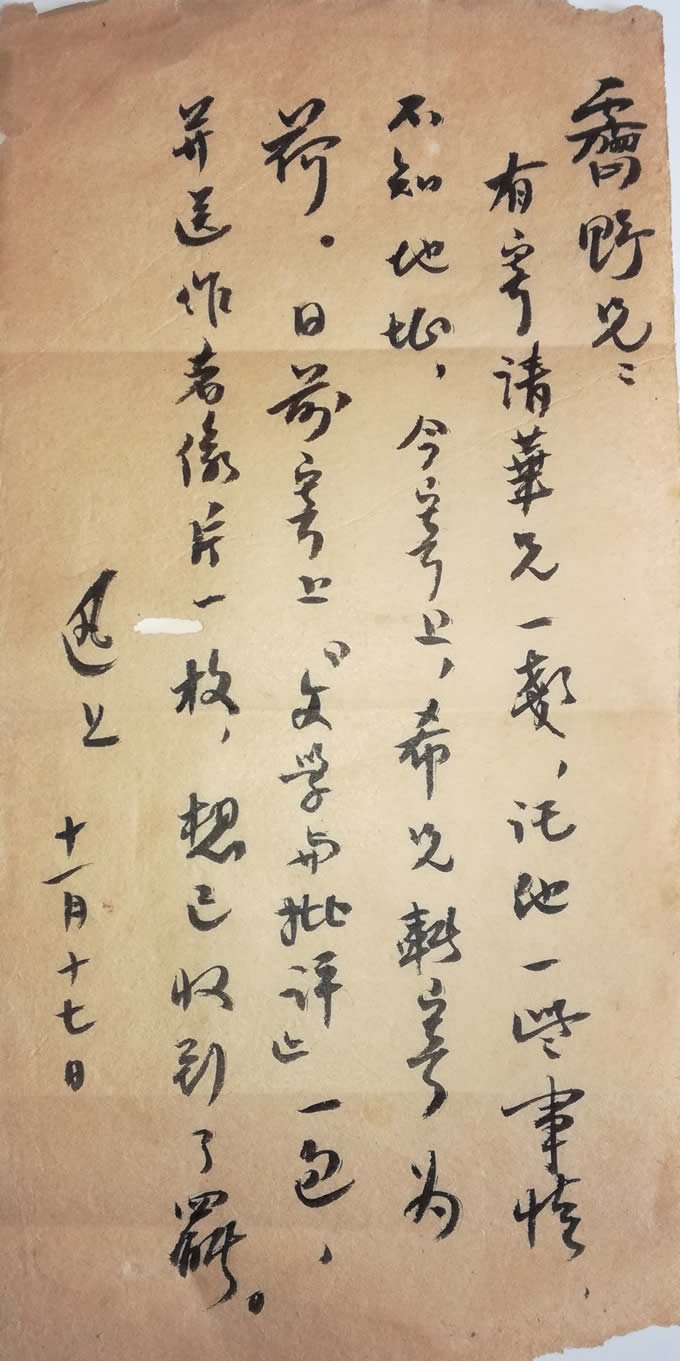 霽野兄：
有寄請華兄一，託他一些事情，
不知地址，今寄上，希兄轉寄为
荷。日前寄上《文学与批評》一包，
并送作者像片一枚，想已收到了罷。
迅上 十一月十七日